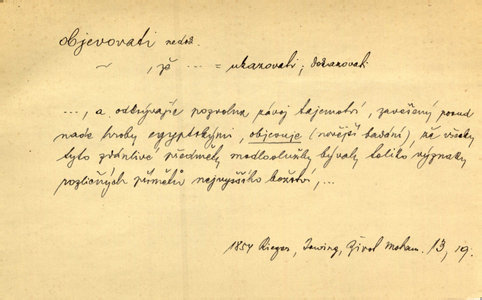 objevovati nedok.
~ , že ... = ukazovati; dokazovati
..., a odkrývajíc pozvolna závoj tajemství, zavěšený posud
nade hroby egyptskými, objevuje (novější bádání), že všecky
tyto zdánlivé předměty modloslužby bývaly toliko význaky
rozličných přímětů nejvyššího božství, ...
1854 Rieger, Irwing, Život Moham. 13, 19.